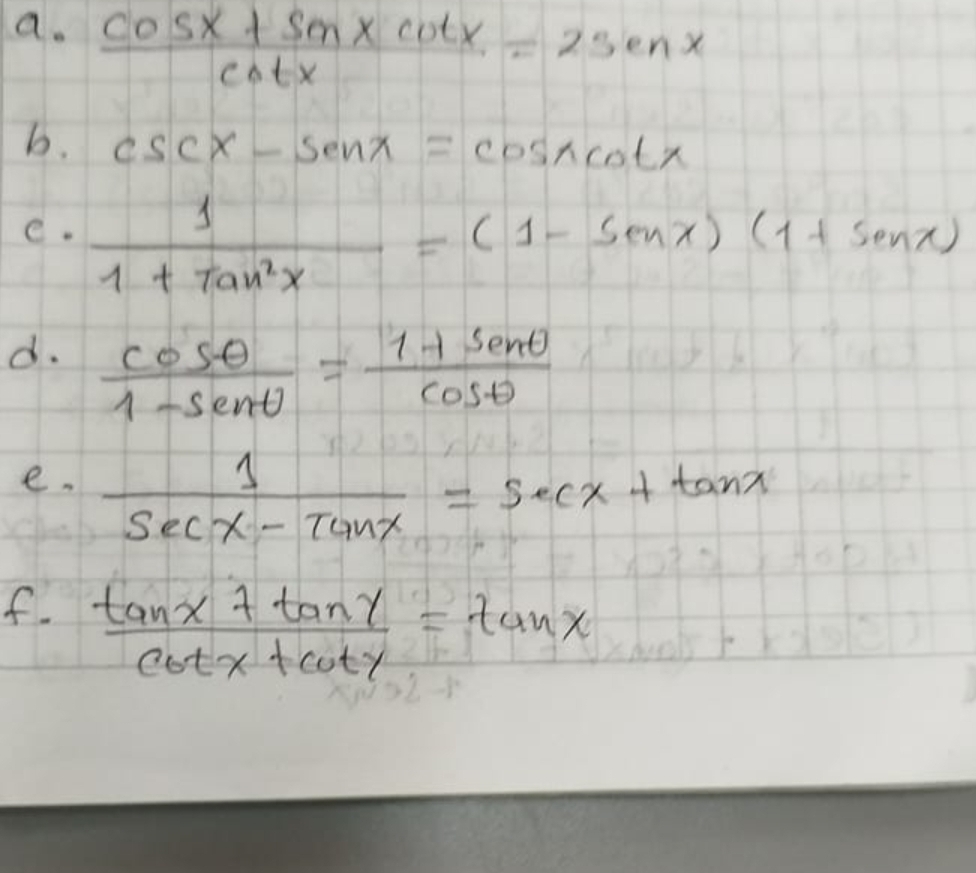 a. cosx + senx cotx = 2senx
cotx
b. cscx - senx = cosxcotx
c. 1 = (1 - senx) (1 + senx)
1 + Tan²x
d. cosθ = 1 + senθ
1 - senθ cosθ
e. 1 = secx + tanx
secx - Tanx
f. tanx + tany = tanx
cotx + coty